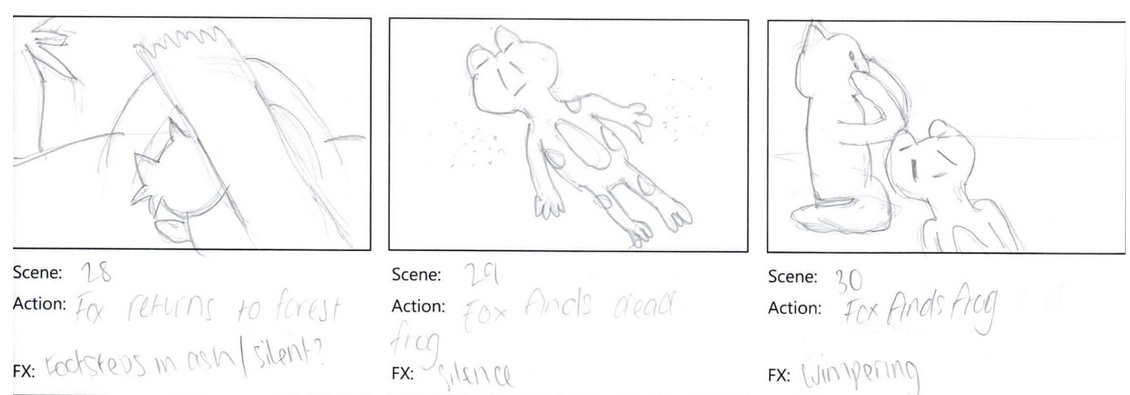 Scene: 28
Action: Fox returns to forest
FX: footsteps in ash/silent?
Scene: 29
Action: Fox finds dead
frog
FX: silence
Scene: 30
Action: Fox finds frog
FX: Wimpering